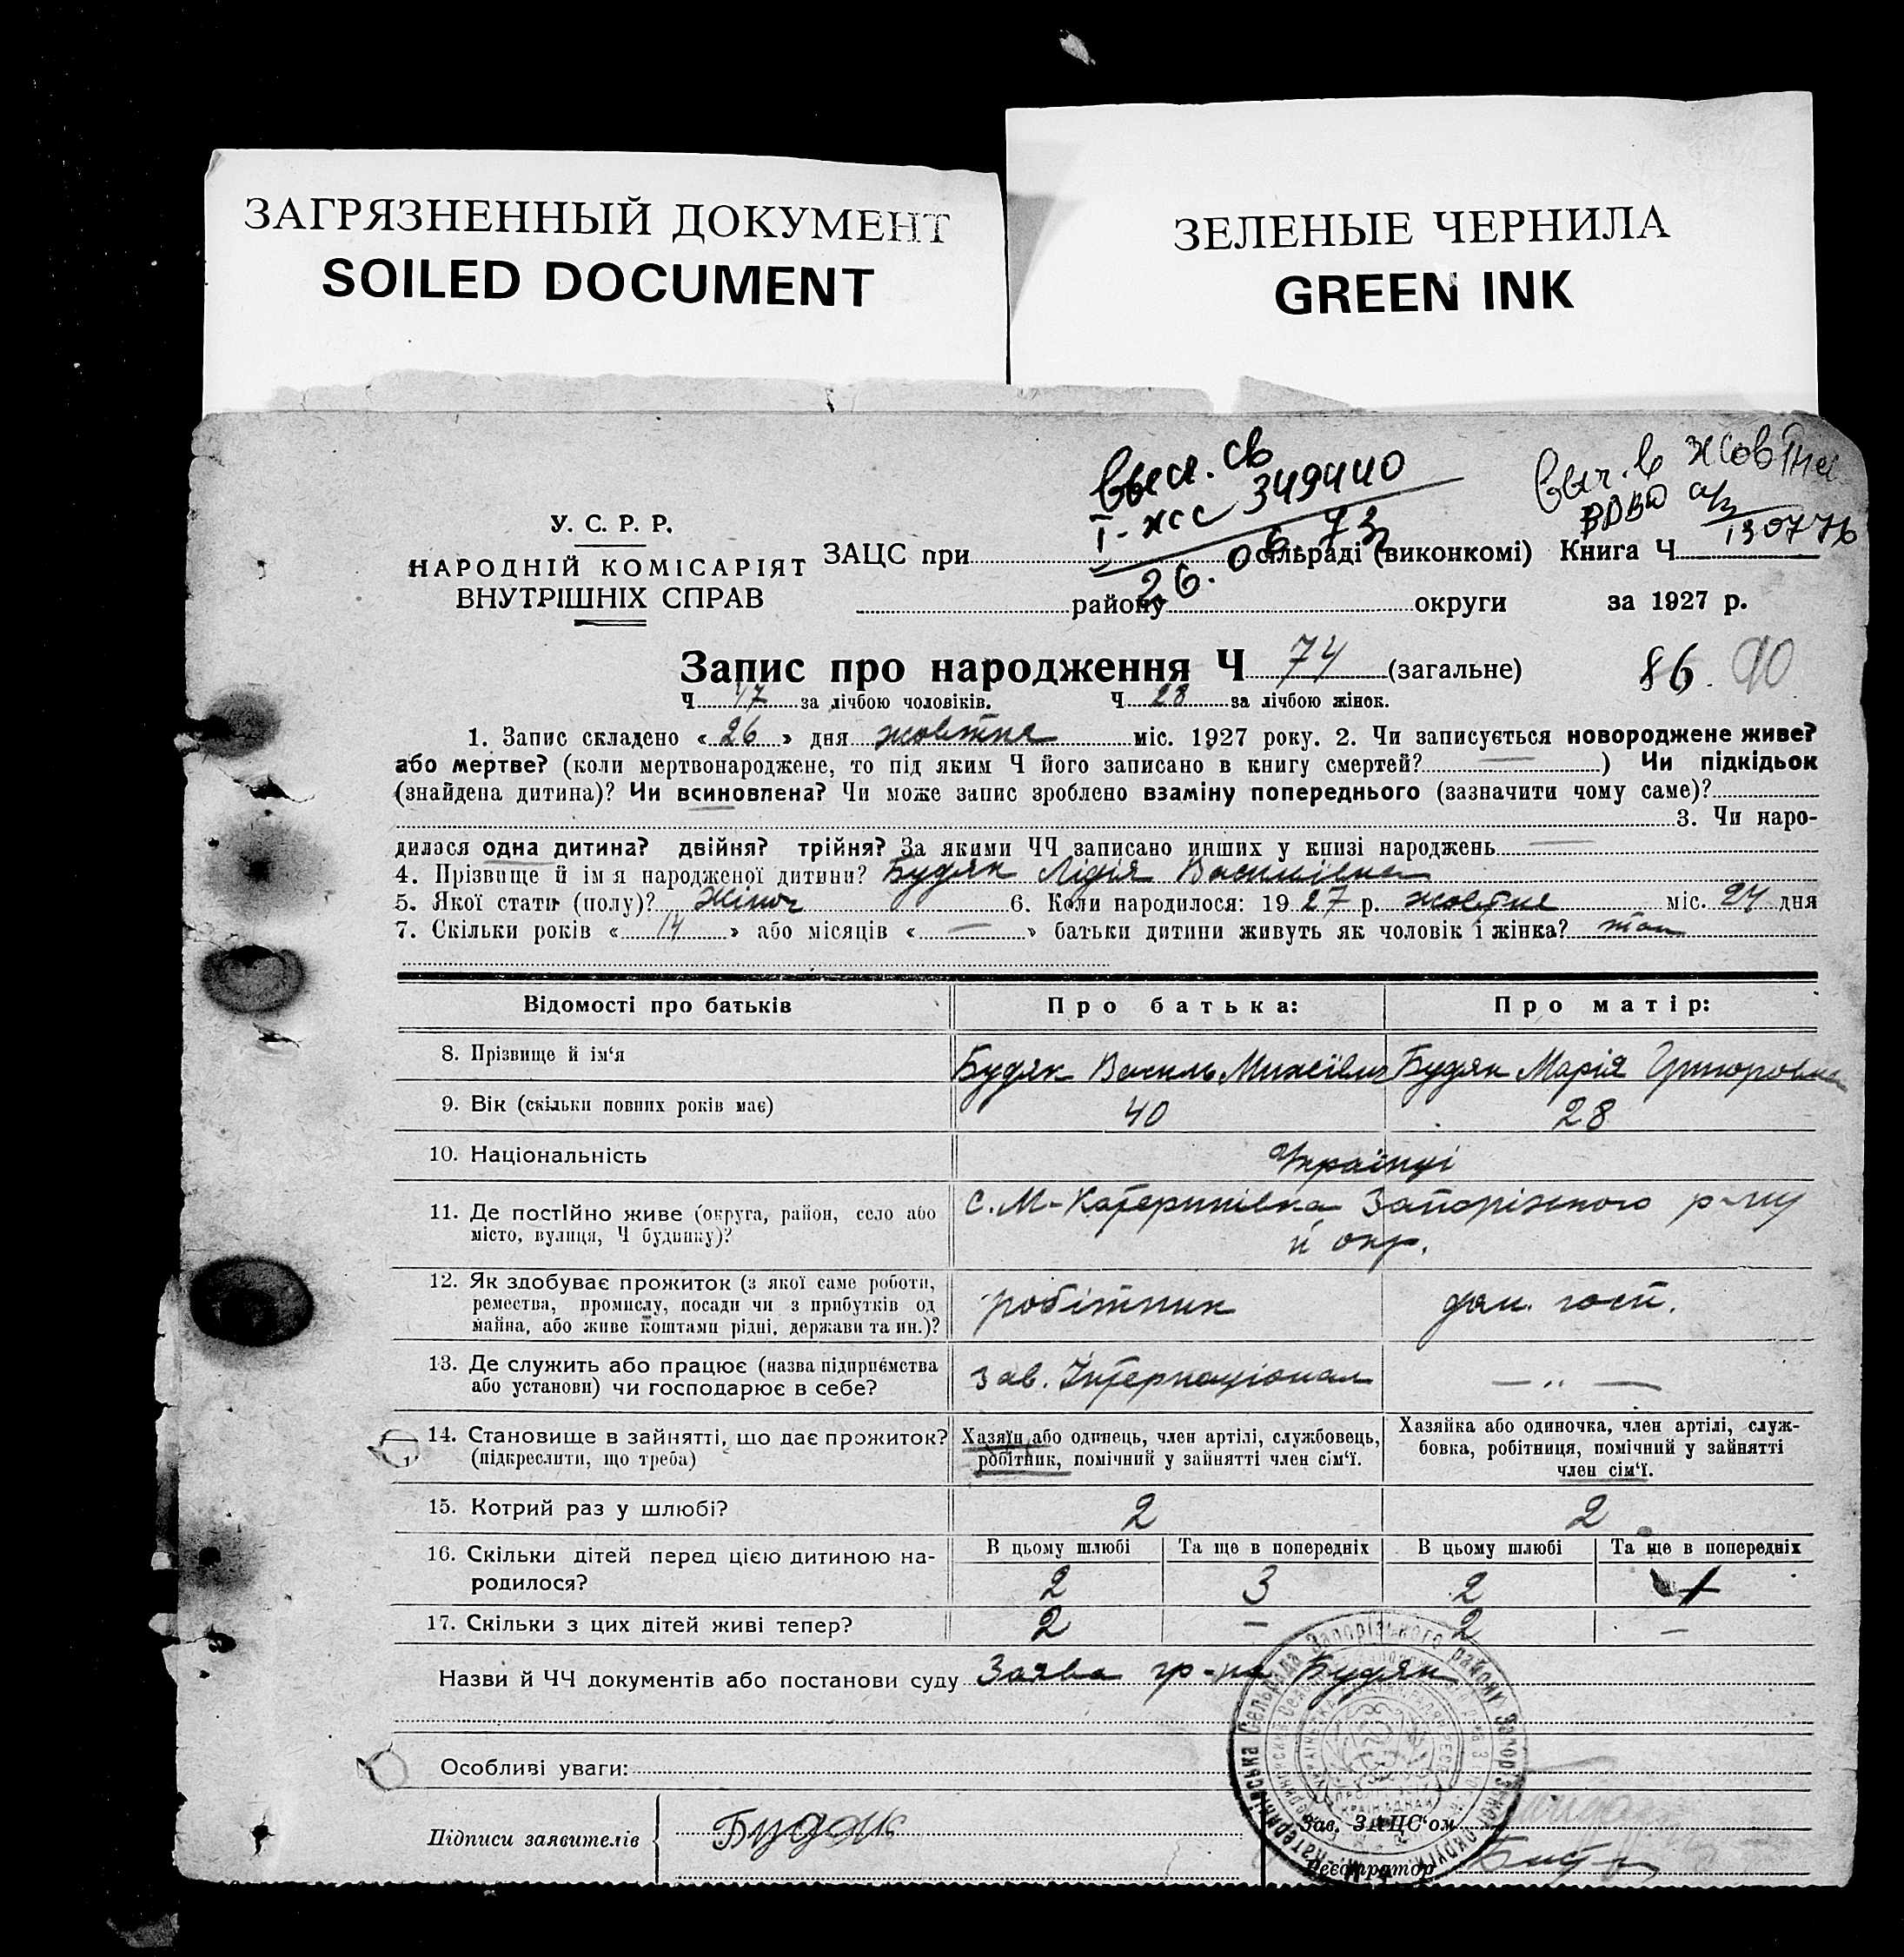 ЗАГРЯЗНЕННЫЙ ДОКУМЕНТ
SOILED DOCUMENT
ЗЕЛЕНЫЕ ЧЕРНИЛА
GREEN INK
I-ЖС 349440
26.06.73
У. С. Р. Р.
НАРОДНІЙ КОМІСАРІЯТ
ВНУТРІШНІХ СПРАВ
ЗАЦС при сільраді (виконкомі) Книга Ч
району округи за 1927 р.
Запис про народження Ч 74 (загальне) 86. 90
Ч 47 за лічбою чоловіків. Ч 28 за лічбою жінок.
1. Запис складено « 26 » дня жовтня міс. 1927 року. 2. Чи записується новороджене живе?
або мертве? (коли мертвонароджене, то під яким Ч його записано в книгу смертей? — ) Чи підкідьок
(знайдена дитина)? Чи всиновлена? Чи може запис зроблено взаміну попереднього (зазначити чому саме)?
3. Чи наро-
дилася одна дитина? двійня? трійня? За якими ЧЧ записано инших у книзі народжень —
4. Прізвище й ім'я народженої дитини? Будяк Лідія Василівна
5. Якої стати (полу)? Жіноч 6. Коли народилося: 1927 р. жовтня міс. 24 дня
7. Скільки років « 14 » або місяців « — » батьки дитини живуть як чоловік і жінка? так
Відомості про батьків Про батька: Про матір:
8. Прізвище й ім'я Будяк Василь Михеївич Будяк Марія Григоровна
9. Вік (скільки повних років має) 40 28
10. Національність Українці
11. Де постійно живе (округа, район, село або
місто, вулиця, Ч будинку)?
С. М-Катеринівка Запоріжського р-ну
й окр.
12. Як здобуває прожиток (з якої саме роботи,
ремества, промислу, посади чи з прибутків од
майна, або живе коштами рідні, держави та ин.)?
робітник дом. госп.
13. Де служить або працює (назва підприємства
або установи) чи господарює в себе?
зав. Інтернаціонал — „ —
14. Становище в зайнятті, що дає прожиток?
(підкреслити, що треба)
Хазяїн або одинець, член артілі, службовець,
робітник, помічний у зайнятті член сім'ї.
Хазяйка або одиночка, член артілі, служ-
бовка, робітниця, помічний у зайнятті
член сім'ї.
15. Котрий раз у шлюбі? 2 2
16. Скільки дітей перед цією дитиною на-
родилося?
В цьому шлюбі Та ще в попередніх В цьому шлюбі Та ще в попередніх
2 3 2
17. Скільки з цих дітей живі тепер? 2 — 2 —
Назви й ЧЧ документів або постанови суду Заява гр-на Будяк
Особливі уваги:
Підписи заявителів Будяк
Зав. ЗАЦС'ом
Реєстратор